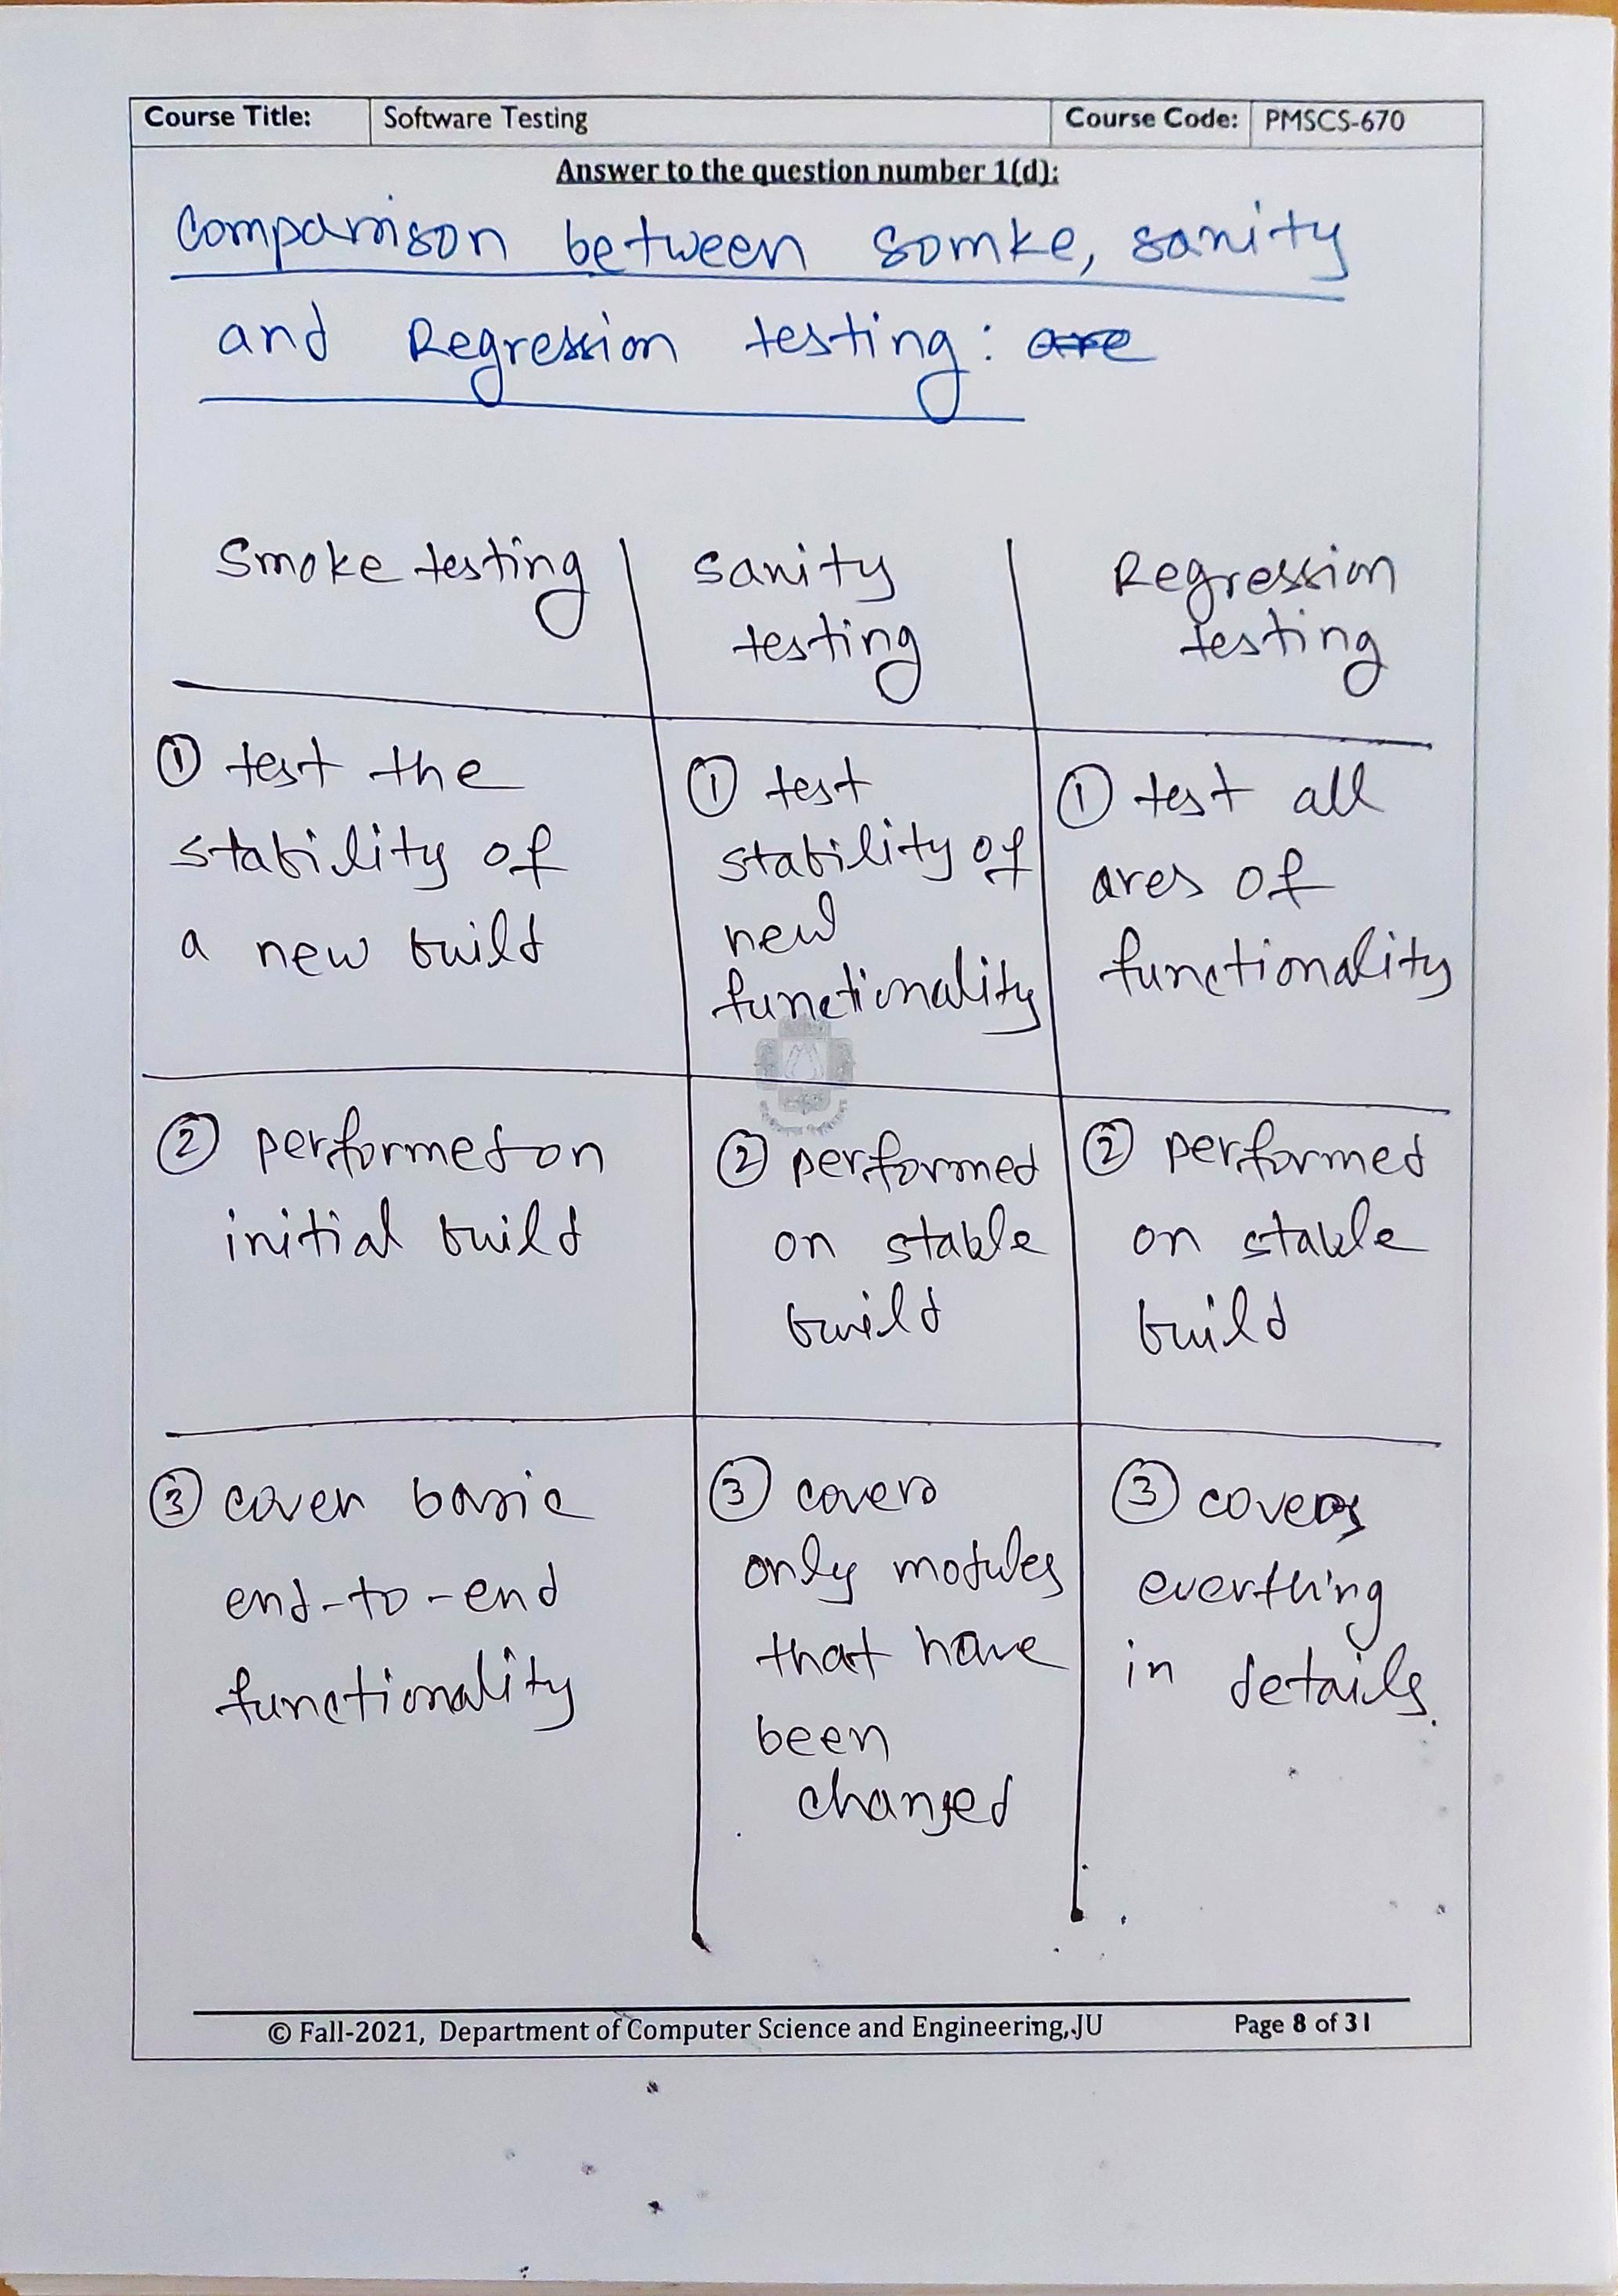 Course Title: Software Testing Course Code: PMSCS-670
Answer to the question number 1(d):
Comparison between somke, sanity
and Regression testing: are
Smoke testing
Sanity
testing
Regression
testing
① test the
stability of
a new build
① test
stability of
new
functionality
① test all
ares of
functionality
② performed on
initial build
② performed
on stable
build
② performed
on stable
build
③ cover basic
end-to-end
functionality
③ covers
only modules
that have
been
changed
③ covers
everthing
in details.
© Fall-2021, Department of Computer Science and Engineering, JU Page 8 of 31